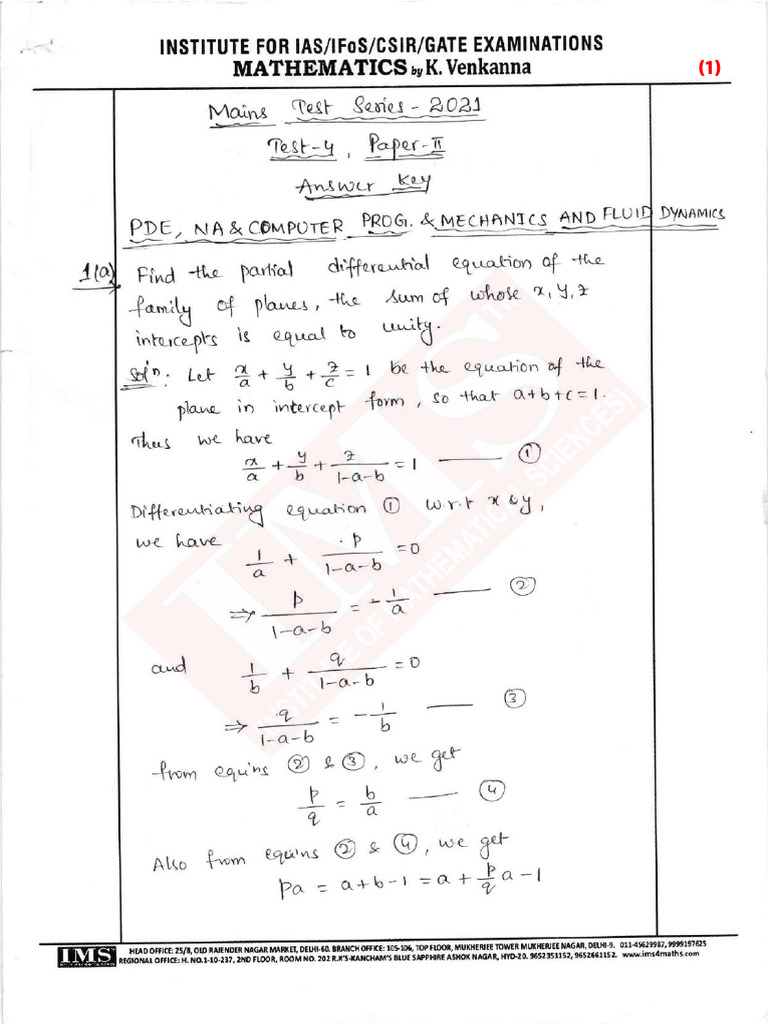 INSTITUTE FOR IAS/IFoS/CSIR/GATE EXAMINATIONS
MATHEMATICS by K. Venkanna
(1)
Mains Test Series - 2021
Test-4, Paper-II
Answer Key
PDE, NA & COMPUTER PROG. & MECHANICS AND FLUID DYNAMICS
1(a) Find the partial differential equation of the
family of planes, the sum of whose x, y, z
intercepts is equal to unity.
Sol'n: Let x/a + y/b + z/c = 1 be the equation of the
plane in intercept form, so that a+b+c=1.
Thus we have
x/a + y/b + z/(1-a-b) = 1 —— ①
Differentiating equation ① w.r.t x & y,
we have
1/a + p/(1-a-b) = 0
⇒ p/(1-a-b) = -1/a —— ②
and 1/b + q/(1-a-b) = 0
⇒ q/(1-a-b) = -1/b —— ③
from equ'ns ② & ③, we get
p/q = b/a —— ④
Also from equ'ns ② & ④, we get
pa = a+b-1 = a + p/q a - 1
IMS
INSTITUTE OF MATHEMATICAL SCIENCES
IMS
HEAD OFFICE: 25/8, OLD RAJENDER NAGAR MARKET, DELHI-60. BRANCH OFFICE: 105-106, TOP FLOOR, MUKHERJEE TOWER MUKHERJEE NAGAR, DELHI-9. 011-45629987, 9999197625
REGIONAL OFFICE: H. NO.1-10-237, 2ND FLOOR, ROOM NO. 202 R.K'S-KANCHAM'S BLUE SAPPHIRE ASHOK NAGAR, HYD-20. 9652351152, 9652661152. www.ims4maths.com